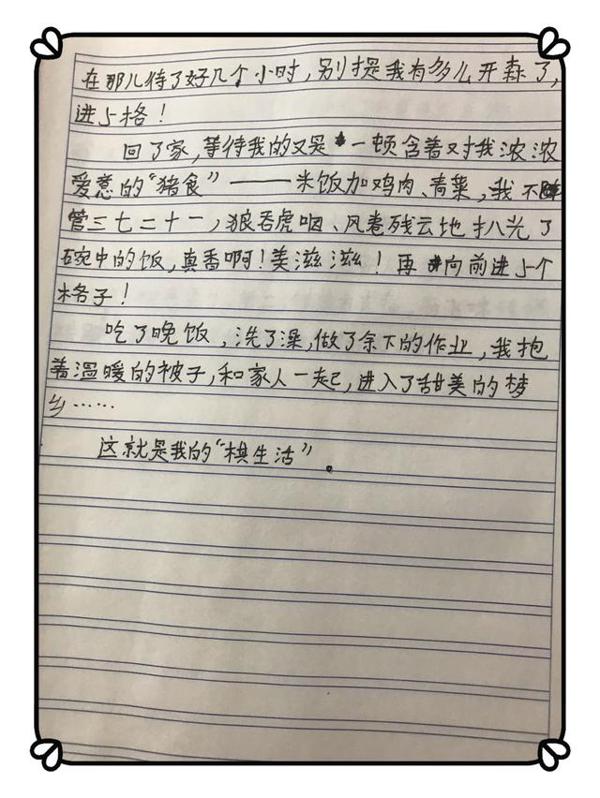 在那儿待了好几个小时，别提我有多么开森了，
进5格！
回了家，等待我的又是一顿含着对我浓浓
爱意的“猪食”——米饭加鸡肉、青菜，我不
管三七二十一，狼吞虎咽、风卷残云地扒光了
碗中的饭，真香啊！美滋滋！再向前进5个
格子！
吃了晚饭，洗了澡，做了余下的作业，我抱
着温暖的被子，和家人一起，进入了甜美的梦
乡……
这就是我的“棋生活”。